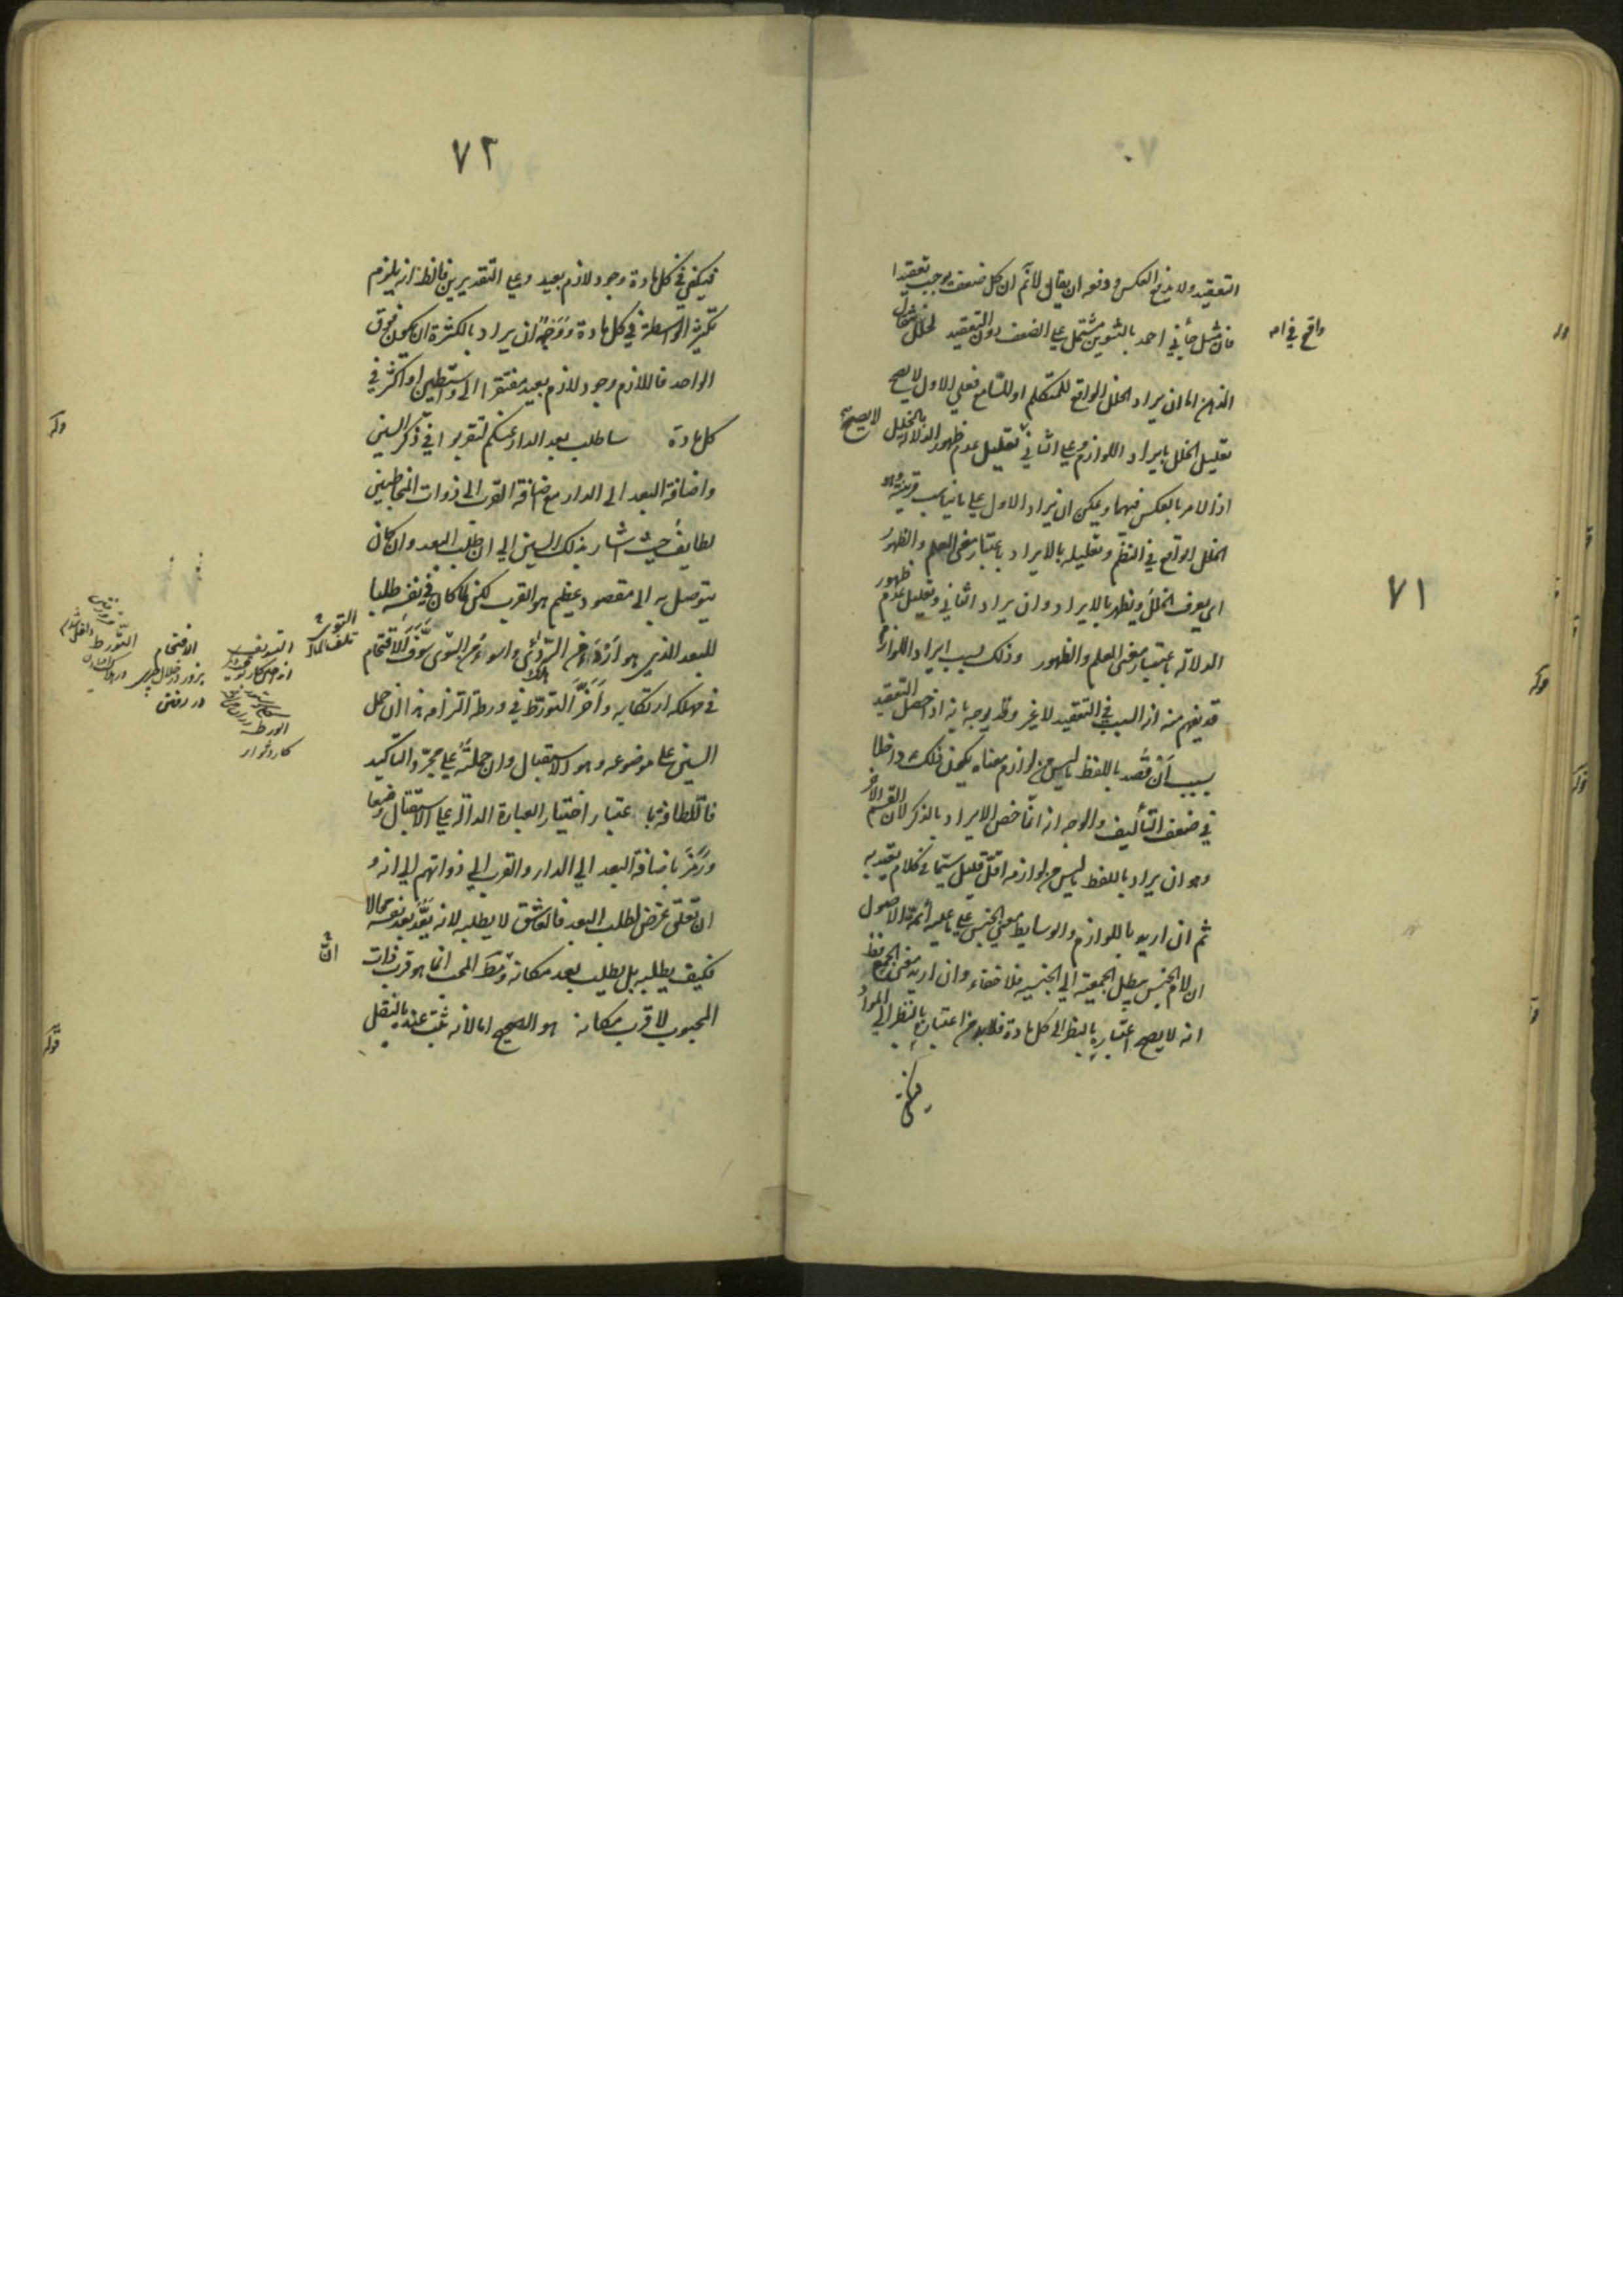 ٧١
التعقيد ولا يدفع العكس ودفعه ان يقال لا نم ان كل ضعف يوجب تعقيدا
فان مثل جأني احمد بالتنوين مشتمل على الضعف دون التعقيد لخلل
واقع في ا
الذهن اما ان يراد الخلل الواقع للمتكلم او للسامع فعلى الاول لا يصح
تعليل الخلل بايراد اللوازم وعلى الثاني تعليل عدم ظهور الدلالة بالخلل لا يصح
اذ الامر بالعكس فيهما ويمكن ان يراد الاول على ما يناسب قرينه وهو
الخلل الواقع في النظم وتعليله بالايراد باعتبار معنى العلم والظهور
اى يعرف الخلل ويظهر بالايراد وان يراد الثاني وتعليل عدم ظهور
الدلالة باعتبار معنى العلم والظهور وذلك بسبب ايراد اللوازم
قد يفهم منه ان السبب في التعقيد لا غير وقد يوجه بانه اذا حصل التعقيد
بسبب ان قصد باللفظ ما ليس من لوازم معناه يكون ذلك داخلا
في ضعف التأليف والوجه انه انما خص الايراد بالذكر لان القسم الآخر
وهو ان يراد باللفظ ما ليس من لوازمه اقل قليل سيما في كلام يعتد به
ثم ان اريد باللوازم والوسايط معنى الجنس على ما عليه أئمة الاصول
ان لام الجنس يبطل الجمعية الى الجنسية فلا خفاء وان اريد معنى الجمع
انه لا يصح اعتباره بالنظر الى كل مادة فلابد من اعتباره بالنظر الى المواد
فيكفي
٧٢
فيكفي في كل مادة وجود لازم بعيد وعلى التقديرين فالظ انه يلزم
تكثر الواسطة في كل مادة ووجه ان يراد بالكثرة ان يكون فوق
الواحد فاللازم وجود لازم بعيد مفتقر الى واسطتين او اكثر في
كل مادة ساطلب بعد الدار عنكم لتقربوا في ذكر السين
واضافة البعد الى الدار مع اضافة القرب الى ذوات المخاطبين
لطايف حيث اشار بذلك السين الى ان طلب البعد وان كان
يتوصل به الى مقصود عظيم هو القرب لكن لما كان في نفسه طلبا
للبعد الذي هو اردء من الردى واسوء من التوى سوف الاقتحام
في مهلكة ارتكابه واخر التورط في ورطة التزامه هذا ان حمل
السين على موضوعه وهو الاستقبال وان حملته على مجرد التاكيد
فاللطافة باعتبار اختيار العبارة الدالة على الاستقبال وضعا
ورمز باضافة البعد الى الدار والقرب الى ذواتهم الى انه و
ان تعلق غرض لطلب البعد فالعاشق لا يطلبه لانه يعد بعد نفسه محالا
فكيف يطلبه بل يطلب بعد مكانه ومط المحب انما هو قرب ذات
المحبوب لا قرب مكانه هو الصحيح اما لانه ثبت عنده بالنقل
الهلاك
التوى
تلف المال
التسويف
الورطة
الاقتحام
در رفتن
التورط
ان
قوله